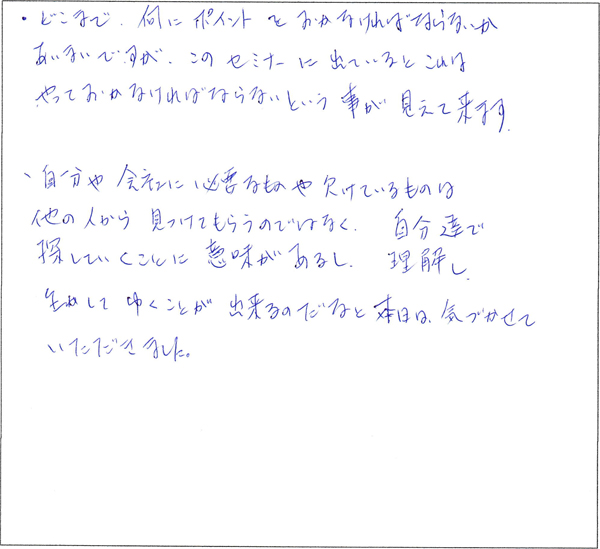 ・どこまで、何にポイントをおかなければならないか
あいまいですが、このセミナーに出ているとこれは
やっておかなければならないという事が見えて来ます。
、自分や会社に必要なものや欠けているものは
他の人から見つけてもらうのではなく、自分達で
探していくことに意味があるし、理解し、
生かしてゆくことが出来るのだなと本日は、気づかせて
いただきました。